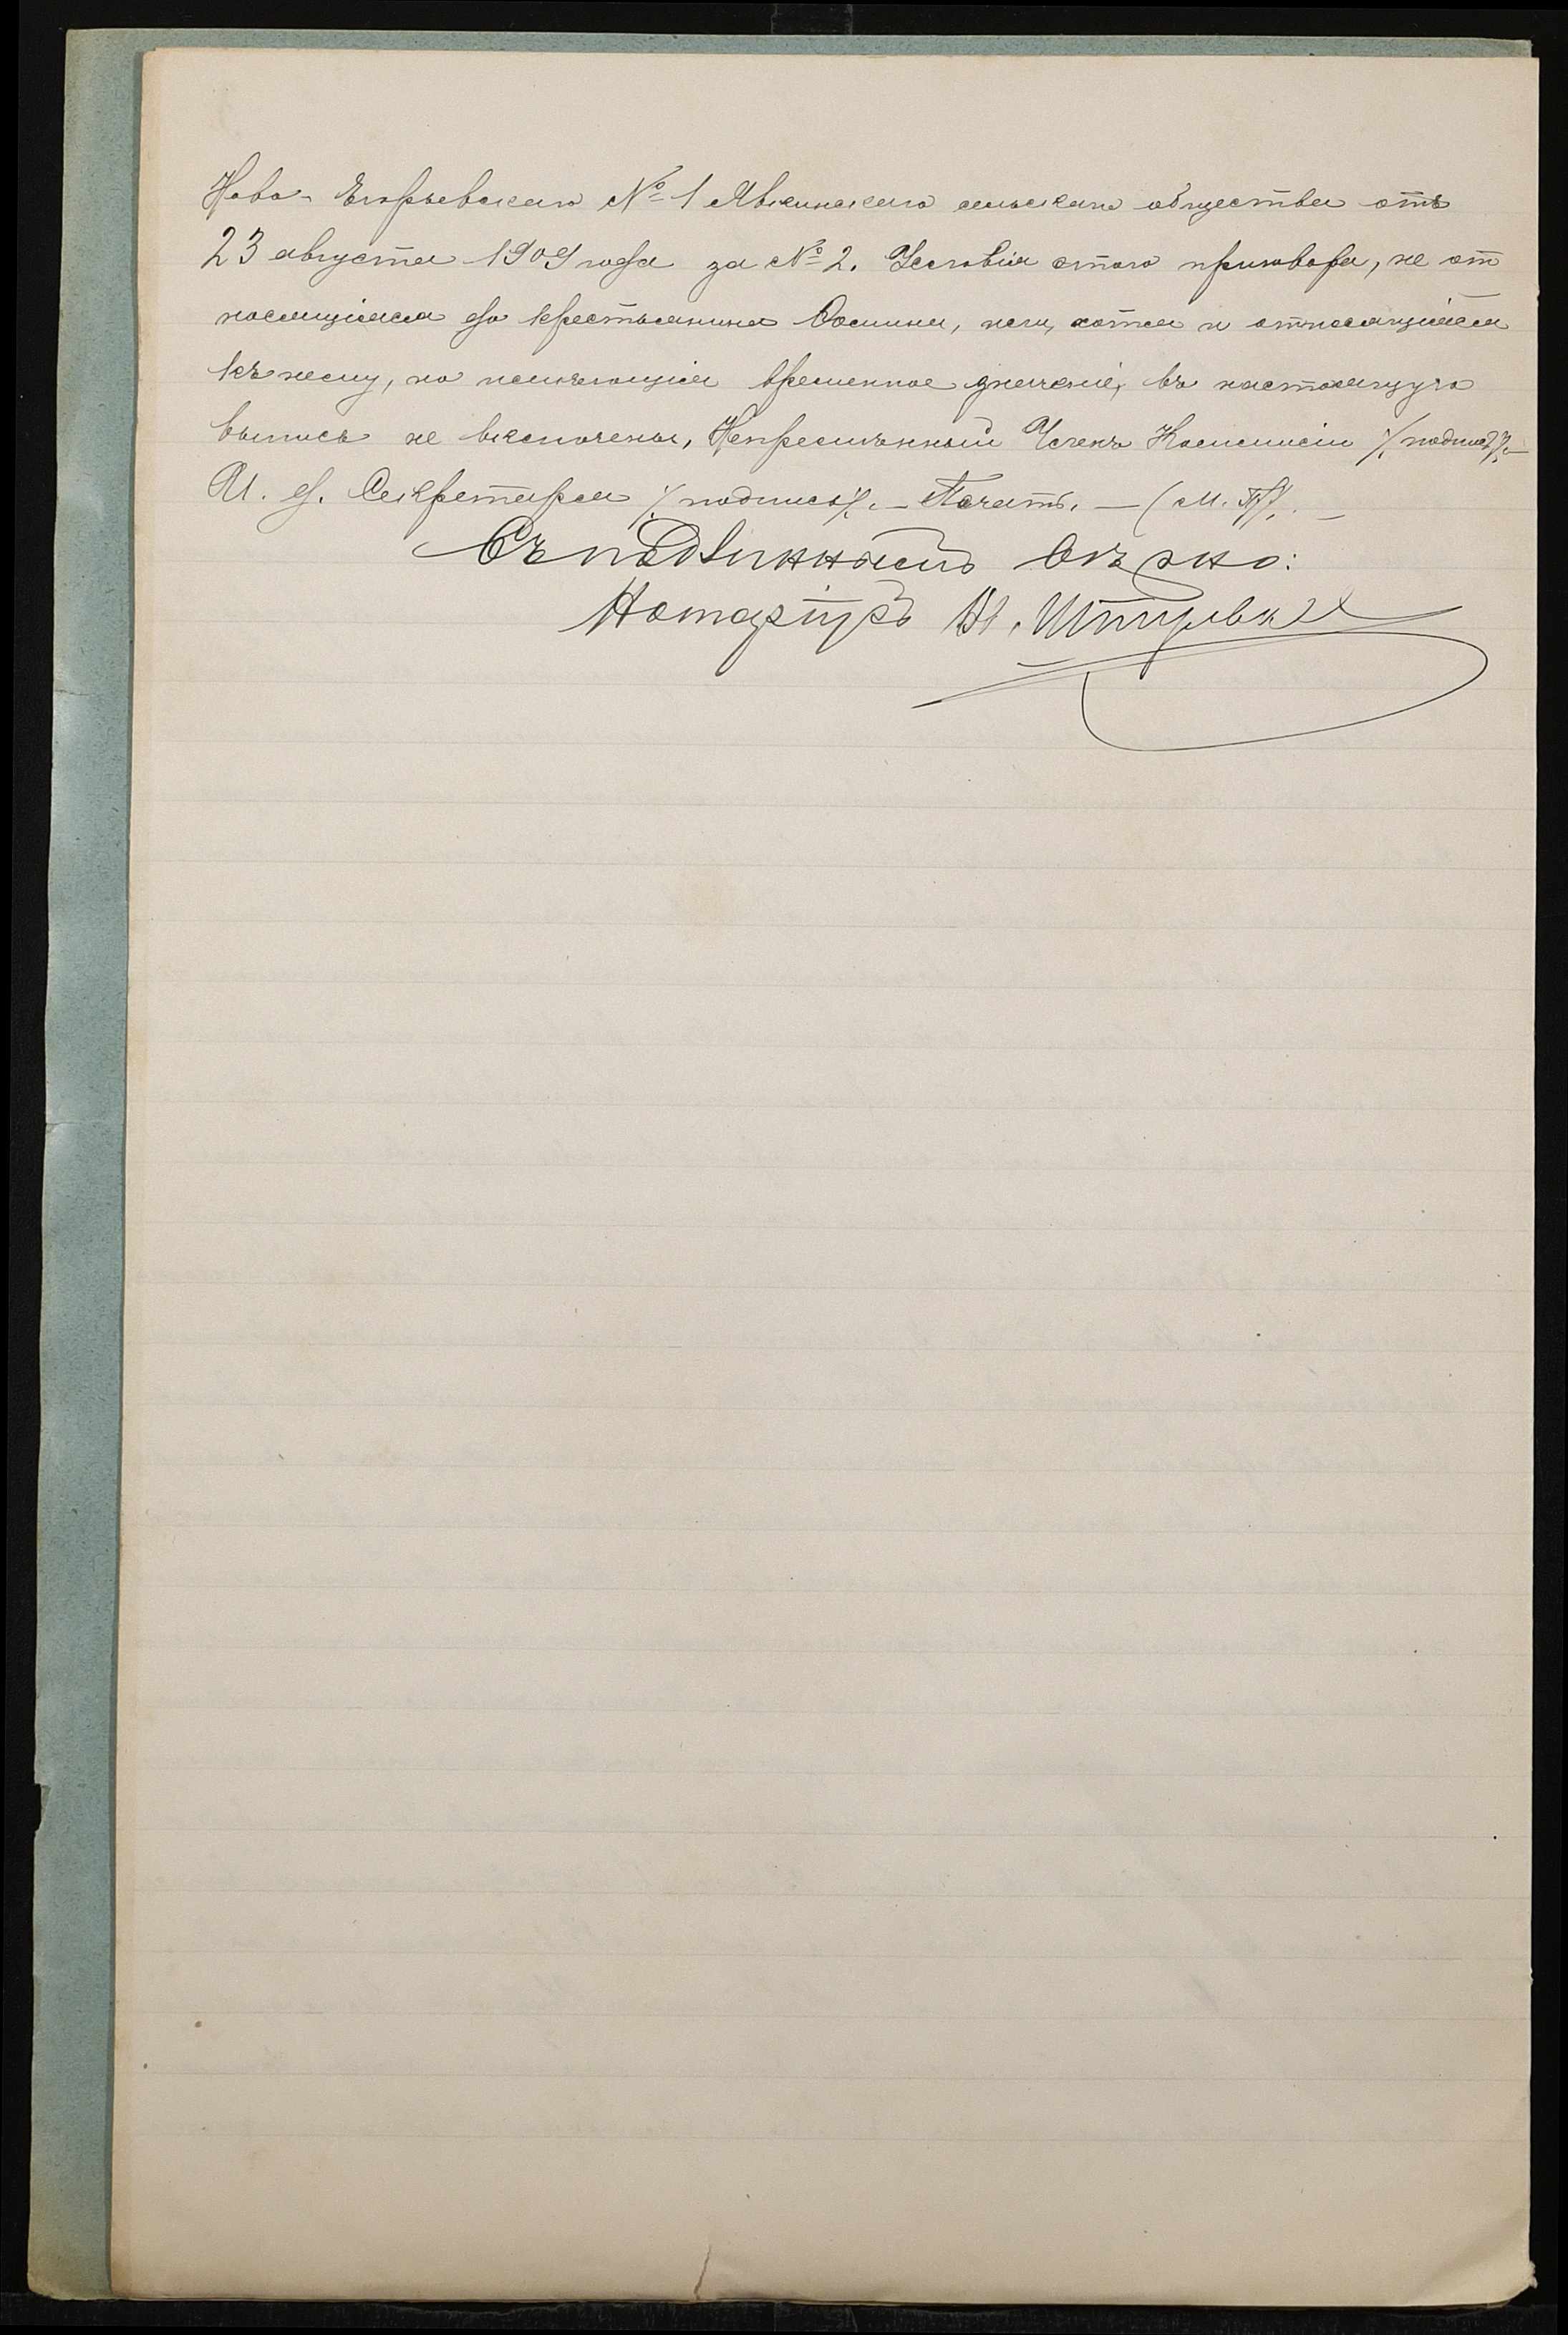 Ново-Егорьевскаго № 1 Явкинскаго сельскаго общества отъ
23 августа 1909 года за № 2. Условія этого приговора, не от
носящіяся до крестьянина Фомина, или, хотя и относящіяся
къ нему, но имѣющія временное значеніе, въ настоящую
выпись не включены, Непремѣнный Членъ Коммисіи /подпись/.—
И. д. Секретаря /подпись/. — Печать. — (М. П.). —
Съ подлиннымъ вѣрно:
Нотаріусъ